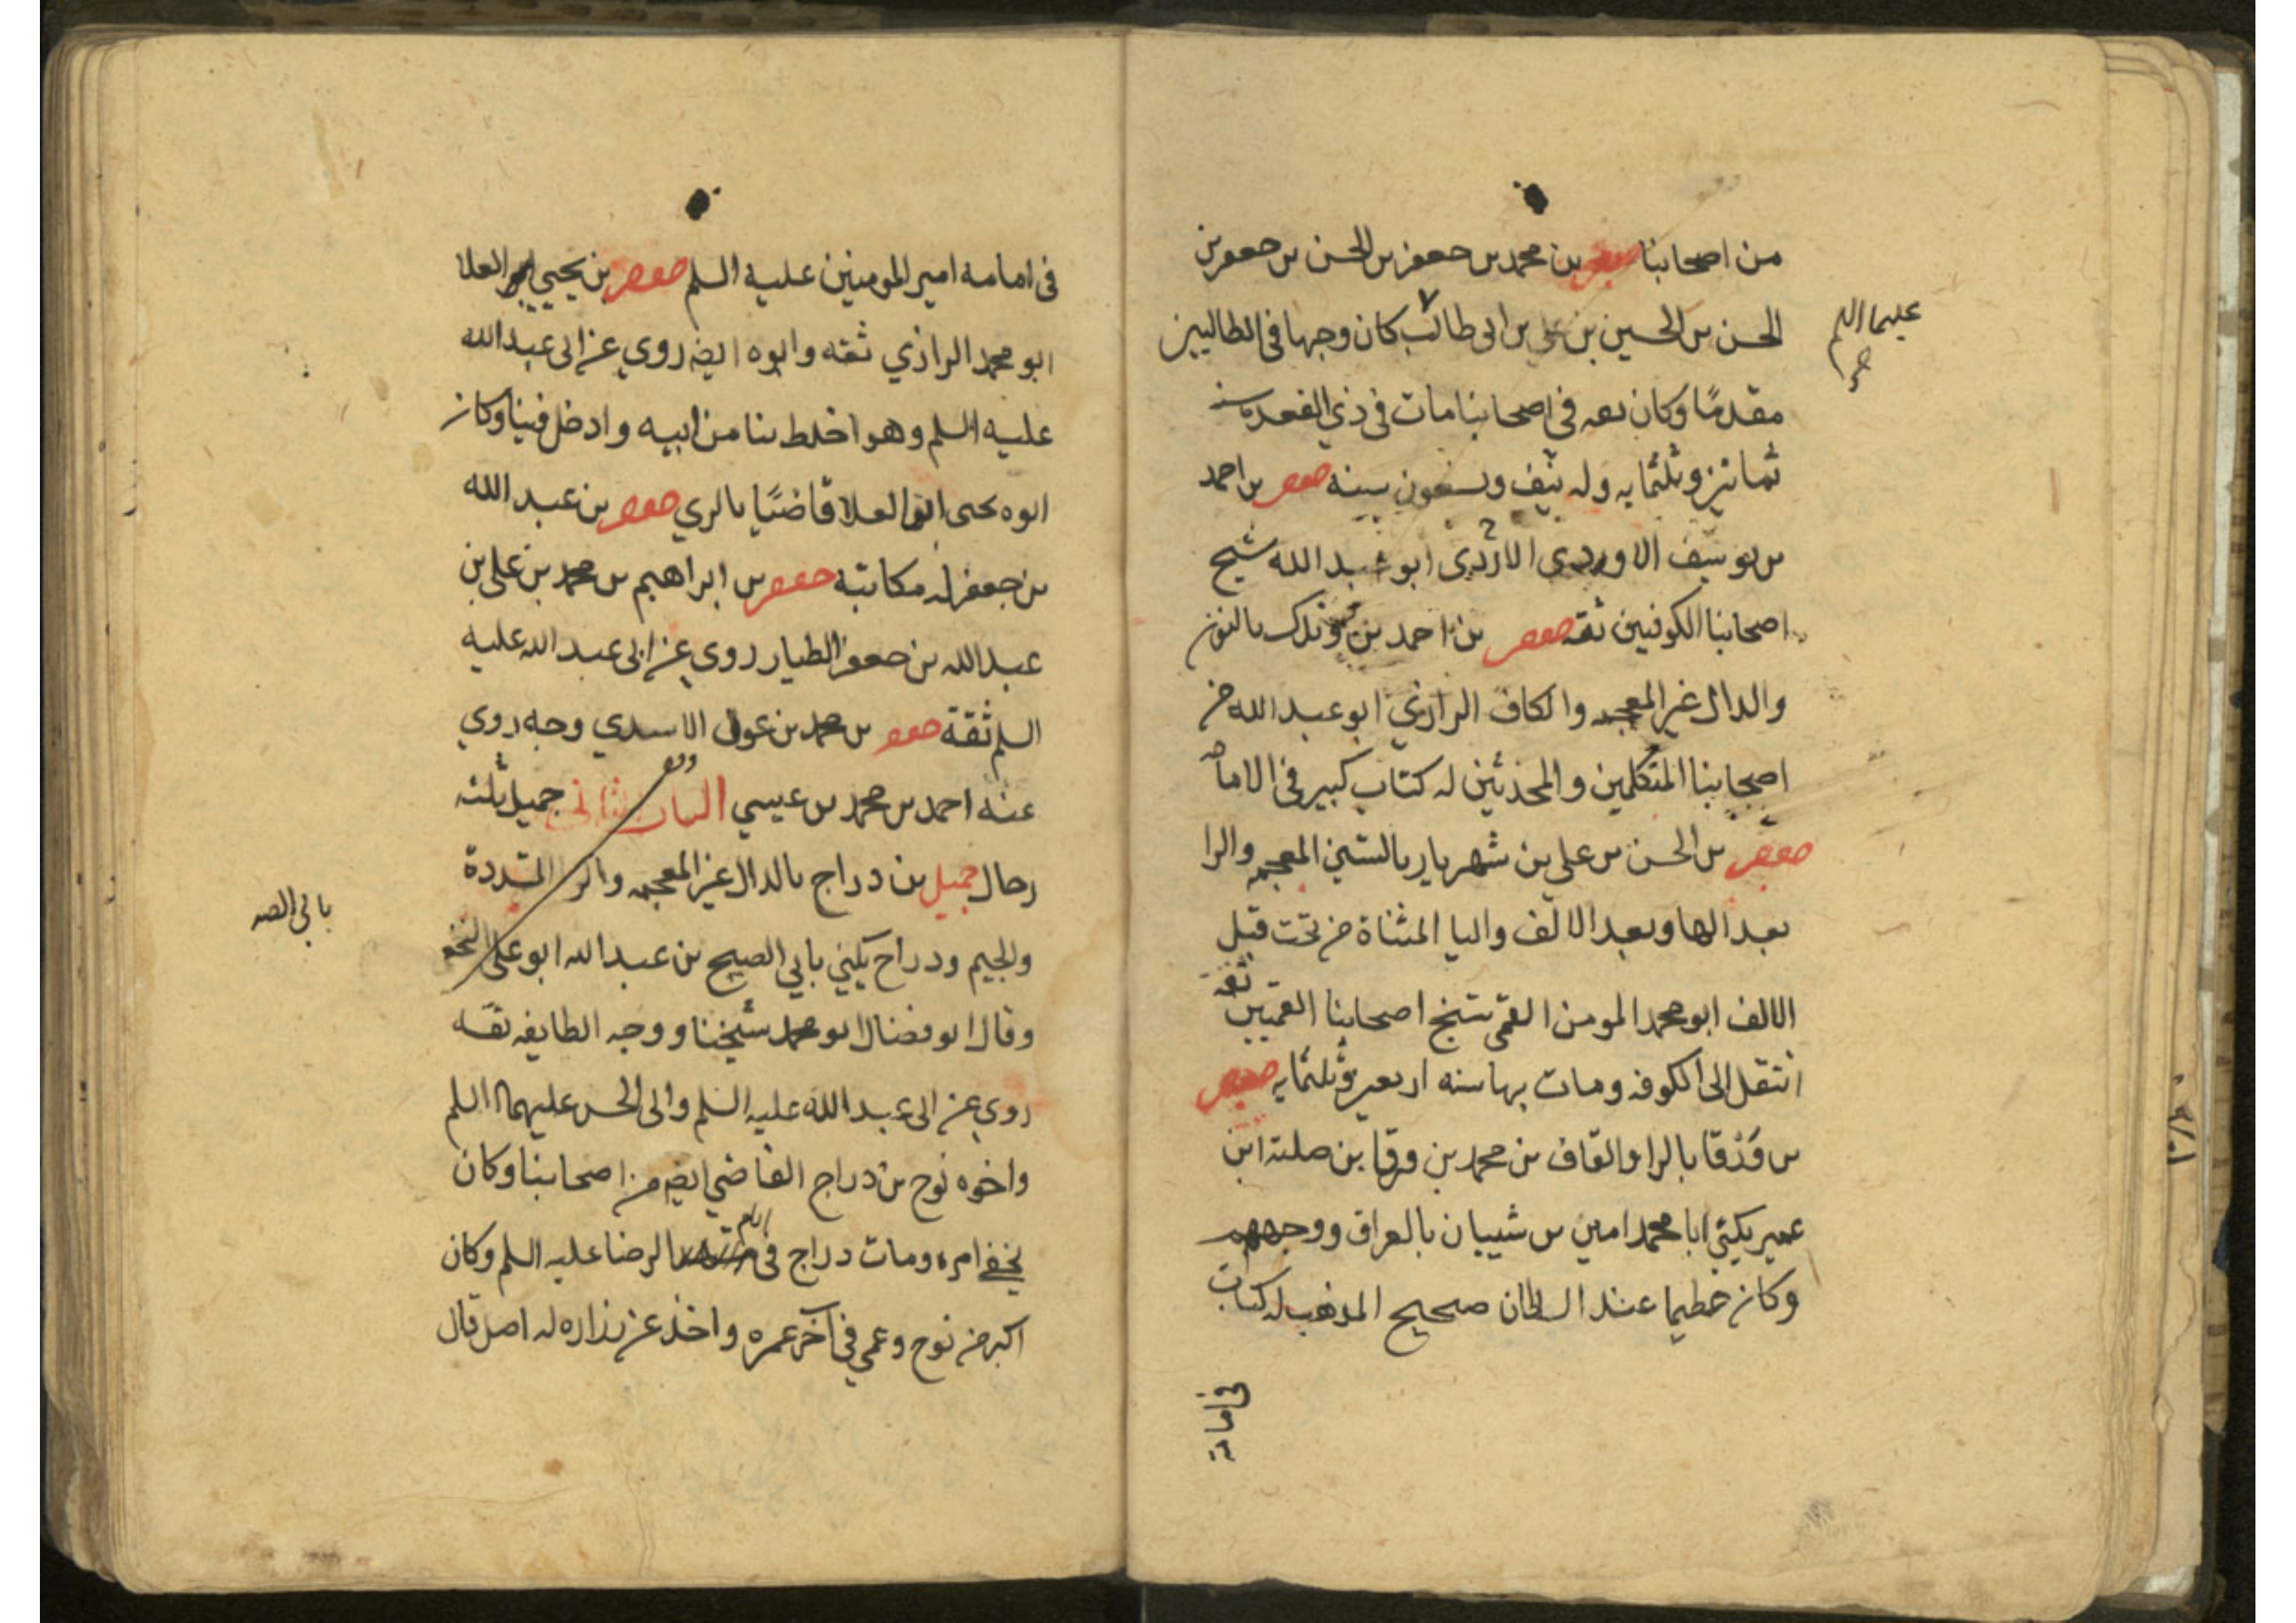 من اصحابنا جعفر بن محمد بن جعفر بن الحسن بن جعفر بن
الحسن بن الحسين بن علي بن ابى طالب كان وجها فى الطالبين
عليهما السلم
صح
مقدمًا وكان ثقه فى اصحابنا مات فى ذي القعده سنه
ثمانين وثلثمايه وله نيف وتسعون سنه جعفر بن احمد
بن يوسف الاودى الازدى ابو عبد الله شيخ
اصحابنا الكوفيين ثقه جعفر بن احمد بن وندك بالنون
والدال غير المعجمه والكاف الرازي ابو عبد الله من
اصحابنا المتكلمين والمحدثين له كتاب كبير فى الامامه
جعفر بن الحسن بن علي بن شهريار بالشين المعجمه والرا
بعد الها وبعد الالف واليا المثناة من تحت قبل
الالف ابو محمد المومن القمى شيخ اصحابنا القميين ثقه
انتقل الى الكوفه ومات بها سنه اربعين وثلثمايه جعفر
بن وَرْقا بالرا والقاف بن محمد بن ورقا بن صلته ابن
عمير يكني ابا محمد امير بن شيبان بالعراق ووجههم
وكان عظيما عند السلطان صحيح المذهب له كتاب
فى امامة
فى امامه امير المومنين عليه السلم جعفر بن يحيي بن العلا
ابو محمد الرازي ثقه وابوه ايضا روي عن ابى عبد الله
عليه السلم وهو اخلط بنا من ابيه وادخل فينا وكان
ابوه يحيى بن العلا قاضيًا بالري جعفر بن عبد الله
بن جعفر له مكاتبه جعفر بن ابراهيم بن محمد بن علي بن
عبد الله بن جعفر الطيار روي عن ابى عبد الله عليه
السلم ثقة جعفر بن محمد بن عون الاسدي وجه روي
عنه احمد بن محمد بن عيسي الباب الثانى جميل ثلثه
رجال جميل بن دراج بالدال غير المعجمه والر المشددة
والجيم ودراج يكني بابي الصبيح بن عبد الله ابو علي النخعي
بابى الصه
وقال ابو فضال ابو محمد شيخنا ووجه الطايفه ثقه
روي عن ابى عبد الله عليه السلم وابى الحسن عليهما السلم
واخوه نوح بن دراج القاضي ايضا من اصحابنا وكان
يخفي امره ومات دراج فى ايام الرضا عليه السلم وكان
اكبر من نوح وعمي فى آخر عمره واخذ عن زراره له اصل قال